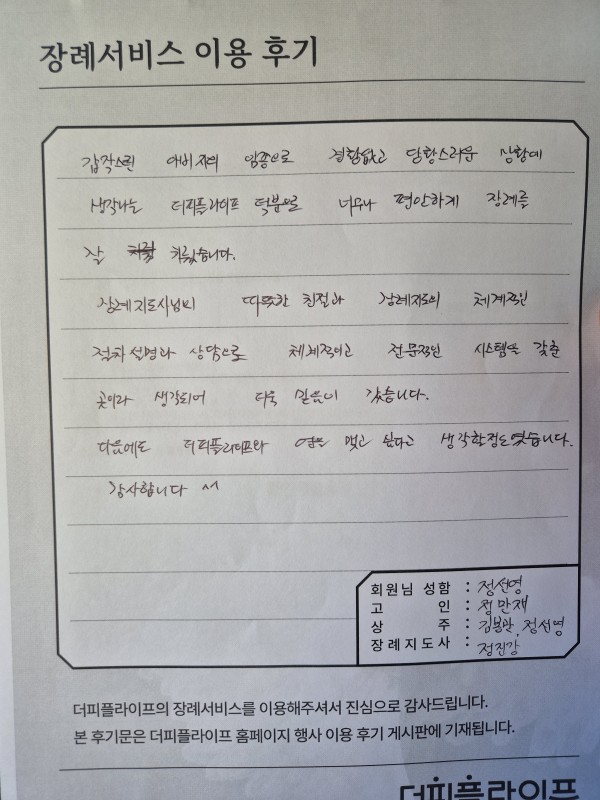 장례서비스 이용 후기
갑작스런 아버지의 임종으로 경황없고 당황스러운 상황에
생각나는 더피플라이프 덕분으로 너무나 편안하게 장례를
잘 치뤘습니다.
장례지도사님의 따뜻한 친절과 장례지도의 체계적인
절차 설명과 상담으로 체계적이고 전문적인 시스템을 갖춘
곳이라 생각되어 더욱 믿음이 갔습니다.
다음에도 더피플라이프와 연을 맺고 싶다고 생각할정도였습니다.
감사합니다 ^^
회원님 성함 : 정선영
고 인 : 정만재
상 주 : 정선영
장례지도사 : 정진강
더피플라이프의 장례서비스를 이용해주셔서 진심으로 감사드립니다.
본 후기문은 더피플라이프 홈페이지 행사 이용 후기 게시판에 기재됩니다.
더피플라이프